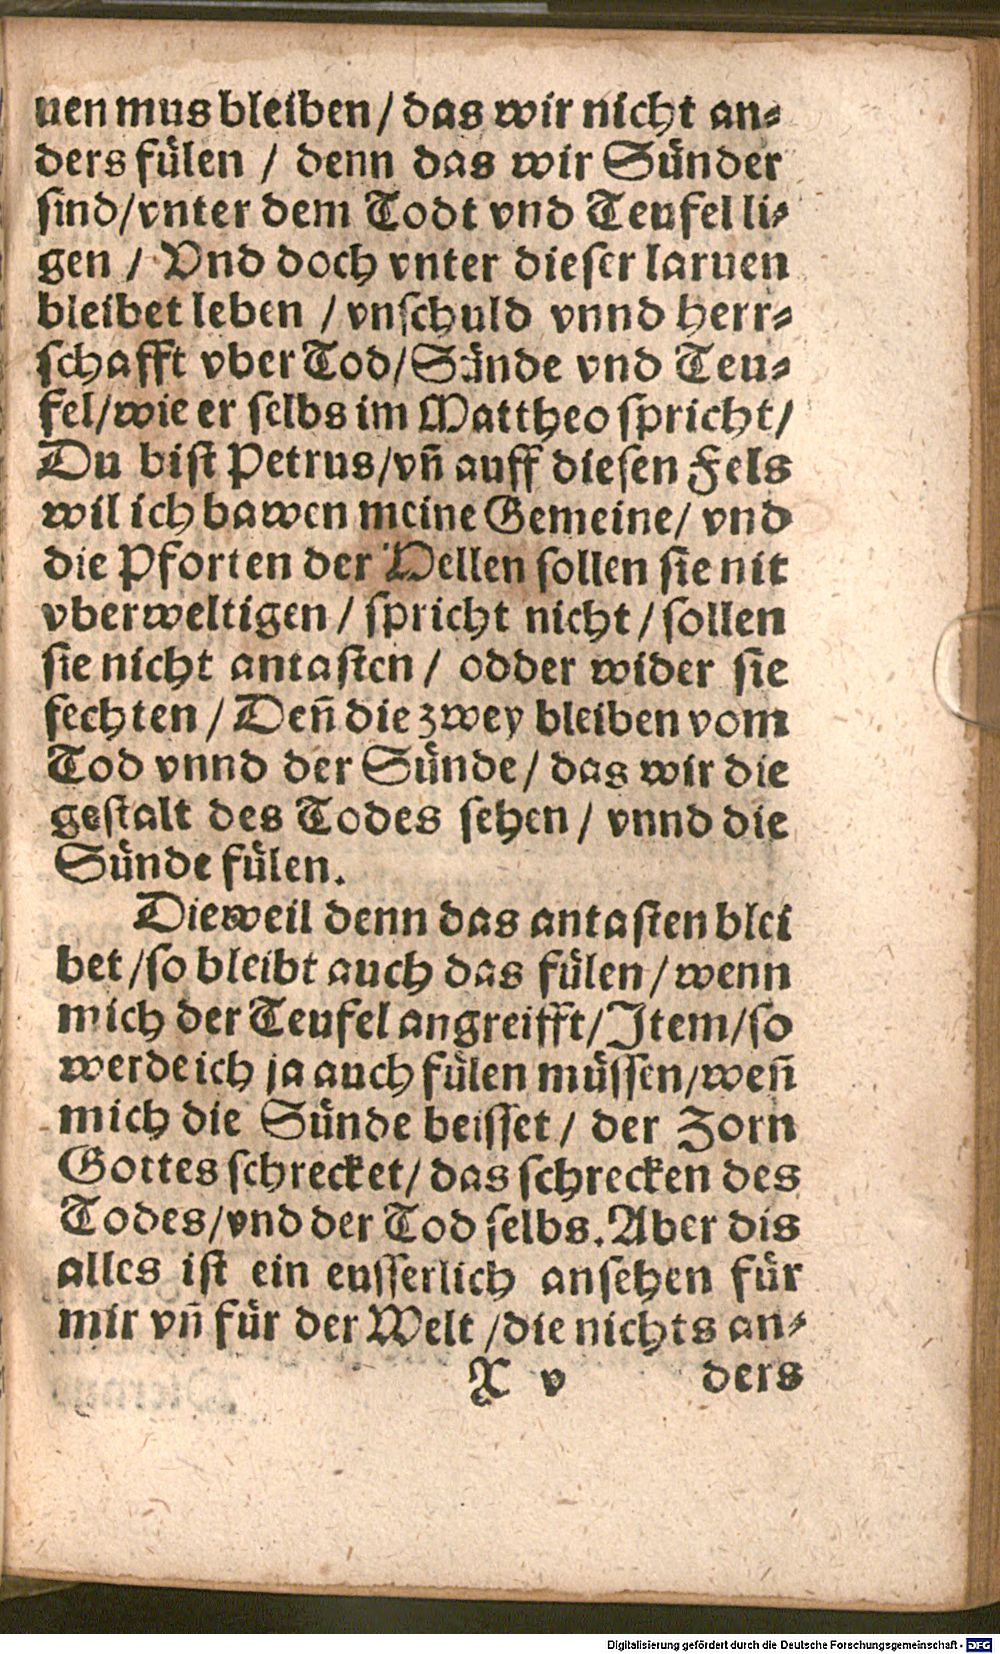 uen mus bleiben / das wir nicht an⸗
ders fülen / denn das wir Sünder
sind/vnter dem Todt vnd Teufel li⸗
gen / Vnd doch vnter dieser laruen
bleibet leben / vnschuld vnnd herr⸗
schafft vber Tod/Sünde vnd Teu⸗
fel/wie er selbs im Mattheo spricht/
Du bist Petrus/vñ auff diesen Fels
wil ich bawen meine Gemeine/ vnd
die Pforten der Hellen sollen sie nit
vberweltigen / spricht nicht / sollen
sie nicht antasten / odder wider sie
fechten / Deñ die zwey bleiben vom
Tod vnnd der Sünde / das wir die
gestalt des Todes sehen / vnnd die
Sünde fülen.
Dieweil denn das antasten blei
bet /so bleibt auch das fülen / wenn
mich der Teufel angreifft/Item/so
werde ich ja auch fülen müssen/weñ
mich die Sünde beisset / der Zorn
Gottes schrecket/ das schrecken des
Todes/vnd der Tod selbs. Aber dis
alles ist ein eusserlich ansehen für
mir vñ für der Welt /die nichts an⸗
X v ders
Digitalisierung gefördert durch die Deutsche Forschungsgemeinschaft - DFG